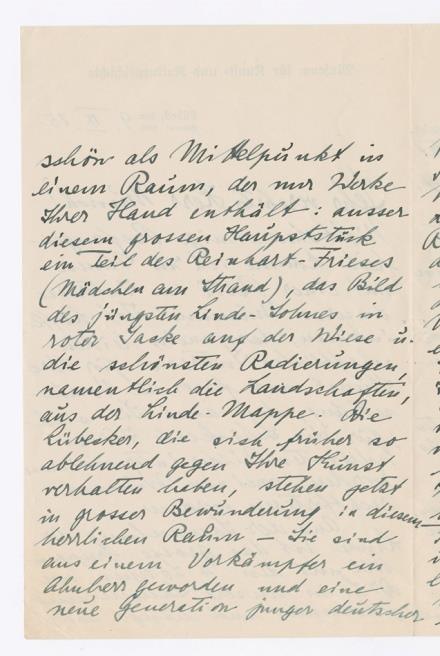 schön als Mittelpunkt in
einem Raum, der nur Werke
Ihrer Hand enthält: ausser
diesem grossen Hauptstück
ein Teil des Reinhart-Frieses
(Mädchen am Strand), das Bild
des jüngsten Linde-Sohnes in
roter Jacke auf der Wiese u.
die schönsten Radierungen,
namentlich die Landschaften,
aus der Linde-Mappe. Die
Lübecker, die sich früher so
ablehnend gegen Ihre Kunst
verhalten haben, stehen jetzt
in grosser Bewunderung in diesem
herrlichen Raum – Sie sind
aus einem Vorkämpfer ein
Ahnherr geworden und eine
neue Generation junger deutscher